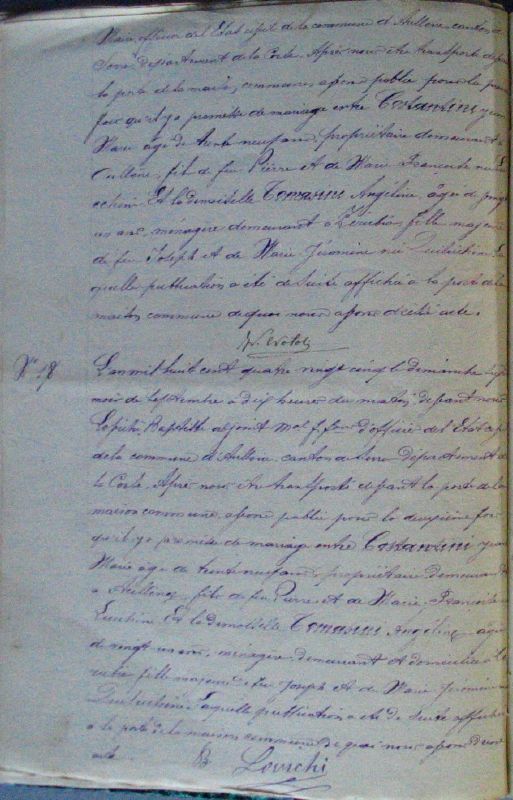 Maire officier de l'Etat civil de la commune d'Aullene canton de
Serra département de la Corse. Après nous être transporté devant
la porte de la maison commune avons publié pour la première
fois qu'il y a promesse de mariage entre Costantini Jean
Marie âgé de trente neuf ans, propriétaire demeurant à
Aullene, fils de feu Pierre et de Marie Françoise
Et la demoiselle Tomasini Angéline, âgée de vingt
un ans, ménagère demeurant à fille majeure
de feu Joseph et de Marie Jéromine née Quilichini La
quelle publication a été de suite affichée à la porte de la
maison commune de quoi nous avons dressé acte.
N° 18
L'an mil huit cent quatre vingt cinq le dimanche
mois de septembre à dix heures du matin, devant nous
Baptiste adjoint f. fons d'officier de l'Etat civil
de la commune d'Aullene canton de Serra département de
la Corse. Après nous être transporté devant la porte de la
maison commune avons publié pour la deuxième fois
qu'il y a promesse de mariage entre Costantini Jean
Marie âgé de trente neuf ans, propriétaire demeurant
à Aullene, fils de feu Pierre et de Marie Françoise
Lucchini Et la demoiselle Tomasini Angéline, âgée
de vingt un ans, ménagère demeurant et domiciliée à
fille majeure de feu Joseph et de Marie Jéromine
Quilichini Laquelle publication a été de suite affichée
à la porte de la maison commune de quoi nous avons dressé
acte. B Lovichi